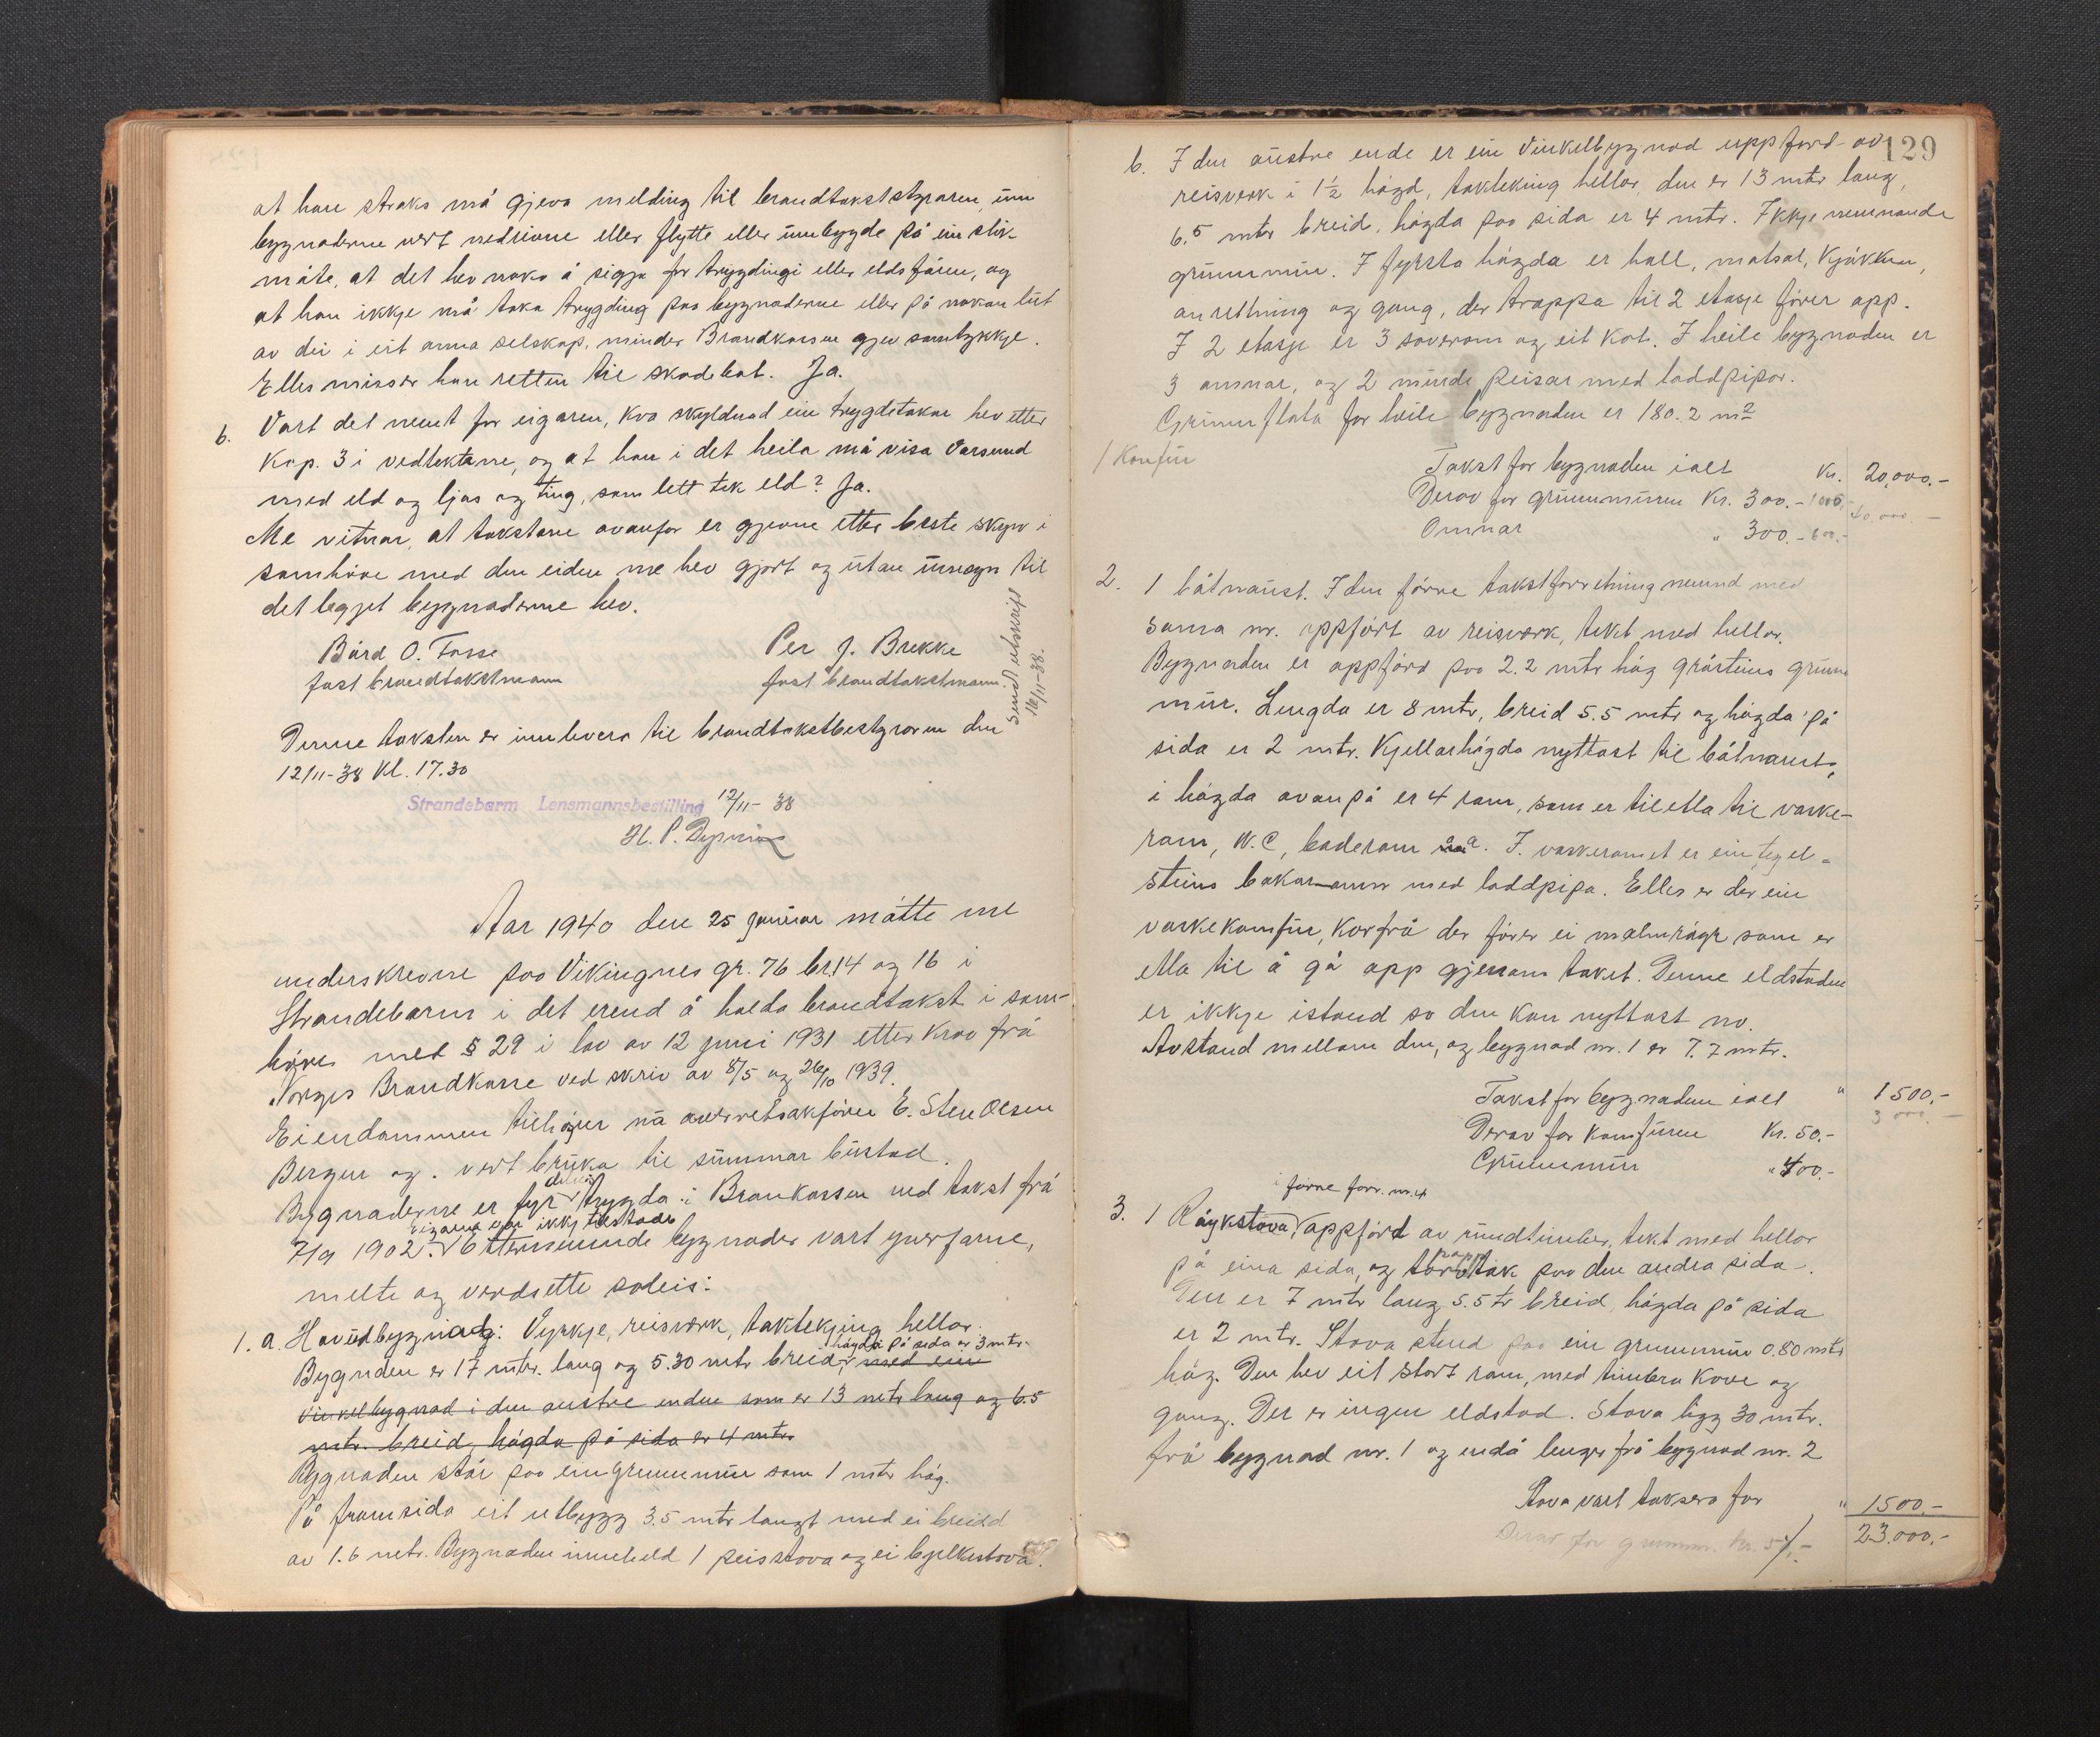 at han straks må gjeva melding til brandtakststyraren, um
bygnaderne vert nedrivne eller flytte eller umbygde på ein slik
måte, at det hev noko å sigja for trygdingi eller eldsfåren, og
at han ikkje må taka trygding paa bygnaderne eller på nokon lut
av dei i eit anna selskap, minder Brandkassen gjev samtykkje.
Elles misser han retten til skadebot. Ja.
6. Vart det nemt for eigaren, kva skyldnad ein trygdetakar hev etter
Kap. 3 i vedtektane, og at han i det heila må visa Varsemd
med eld og ljos og ting, som lett tek eld? Ja.
Me vitnar, at takstane ovanfor er gjevne etter beste skyn i
samhöve med den eiden me hev gjort og utan umsyn til
det legjet bygnaderne hev.
Bård O. Fosse Per J. Brekke
fast brandtakstmann fast brandtakstmann.
Sendt utskrift
16/11-38.
Denne taksten er innlevera til brandtakstbestyraren den
12/11-38 Kl. 17.30
Strandebarm Lensmannsbestilling 12/11- 38
H. P.
Aar 1940 den 25 januar måtte me
underskrevne paa Vikingnes gr. 76 br. 14 og 16 i
Strandebarm i det erend å halda brandtakst i sam-
höve med § 29 i lov av 12 juni 1931 etter Krav frå
Norges Brandkasse ved skriv av 8/5 og 26/10 1939.
Eiendommen tilhøjrer nå overretsakförer E. Sten Olsen
Bergen og . vert bruka til summar bustad.
Bygnaderne er fyr delvis trygda i Brankassen ved takst frå
7/9 1902. Eigaren var ikkj tilstade Etternemnde bygnader vart ynerfarne,
melte og verdsette soleis:
1. a. Hovudbygnad: Vyrkje, reisverk, taktekjing hellor.
Bygnden er 17 mtr. lang og 5.30 mtr breid, högda på sida er 3 mtr. med ein
vinkelbygnad i den austre enden som er 13 mtr lang og 6.5
mtr. breid, högda på sida er 4 mtr.
Bygnaden står paa ein grunnmur som 1 mtr hög.
På framsida eit utbygg 3.5 mtr langt med ei breidd
av 1.6 mtr. Bygnaden inneheld 1 peisstova og ei bjelkestova.
129
b. I den austre ende er ein Vinkelbygnad uppförd av
reisverk i 1½ högd, takteking hellor, den er 13 mtr lang,
6.5 mtr breid, högda paa sida er 4 mtr. Ikkje nemnande
grunnmur. I fyrsta högda er hall, matsal, Kjökken,
anrettning og gang, der trappa til 2 etasje förer opp.
I 2 etasje er 3 soverom og eit Kot. I heile bygnaden er
3 omnar, og 2 murde peisar med loddpipor.
Grunnflata for heile bygnaden er 180.2 m2
1 Komfür
Takst for bygnaden ialt Kr. 20,000.-
Derav for grunnmuren Kr. 300.- 1000.- 40,000 -
Omnar " 300.- 600.-
2. 1 båtnaust. I den förre takstforretning nemnd med
sama nr. oppfört av reisverk, tekt med hellor.
Bygnaden er oppförd paa 2.2 mtr hög gråsteins grunn
mur. Lengda er 8 mtr, breid 5.5 mtr og högda på
sida er 2 mtr. Kjellarhögda nyttast til båtnaust,
i högda ovanpå er 4 rom, som er til etla til vaske-
rom, W.C, baderom o.a. I vaskeromet er ein tegel-
steins bakaromn med loddpipa. Elles er der ein
vaskekomfur, Korfrå der förer ei malmrögr som er
etla til å gå opp gjenom taket. Denne eldstaden
er ikkje istand so den kan nyttast no.
Avstand mellom den, og bygnad nr. 1 er 7.7 mtr.
Takst for bygnaden ialt " 1500.-
3 000. -
Derav for Komfuren Kr. 50.-
Grunnmur " 400.-
i förre forr. nr. 4
3. 1 Röykstova, oppförd av rundtimber, tekt med hellor
på eina sida, og papp tak paa den andra sida.
Den er 7 mtr lang 5.5 tr breid, högda på sida
er 2 mtr. Stova stend paa ein grunnmur 0.80 mtr
hög. Den hev eit stort rom, med timbra Kove og
gang. Der er ingen eldstad. Stova ligg 30 mtr.
frå bygnad nr. 1 og endå lenger frå bygnad nr. 2
Stova vart taksera for " 1500.-
Derav for grunnm. kr. 23.000.-